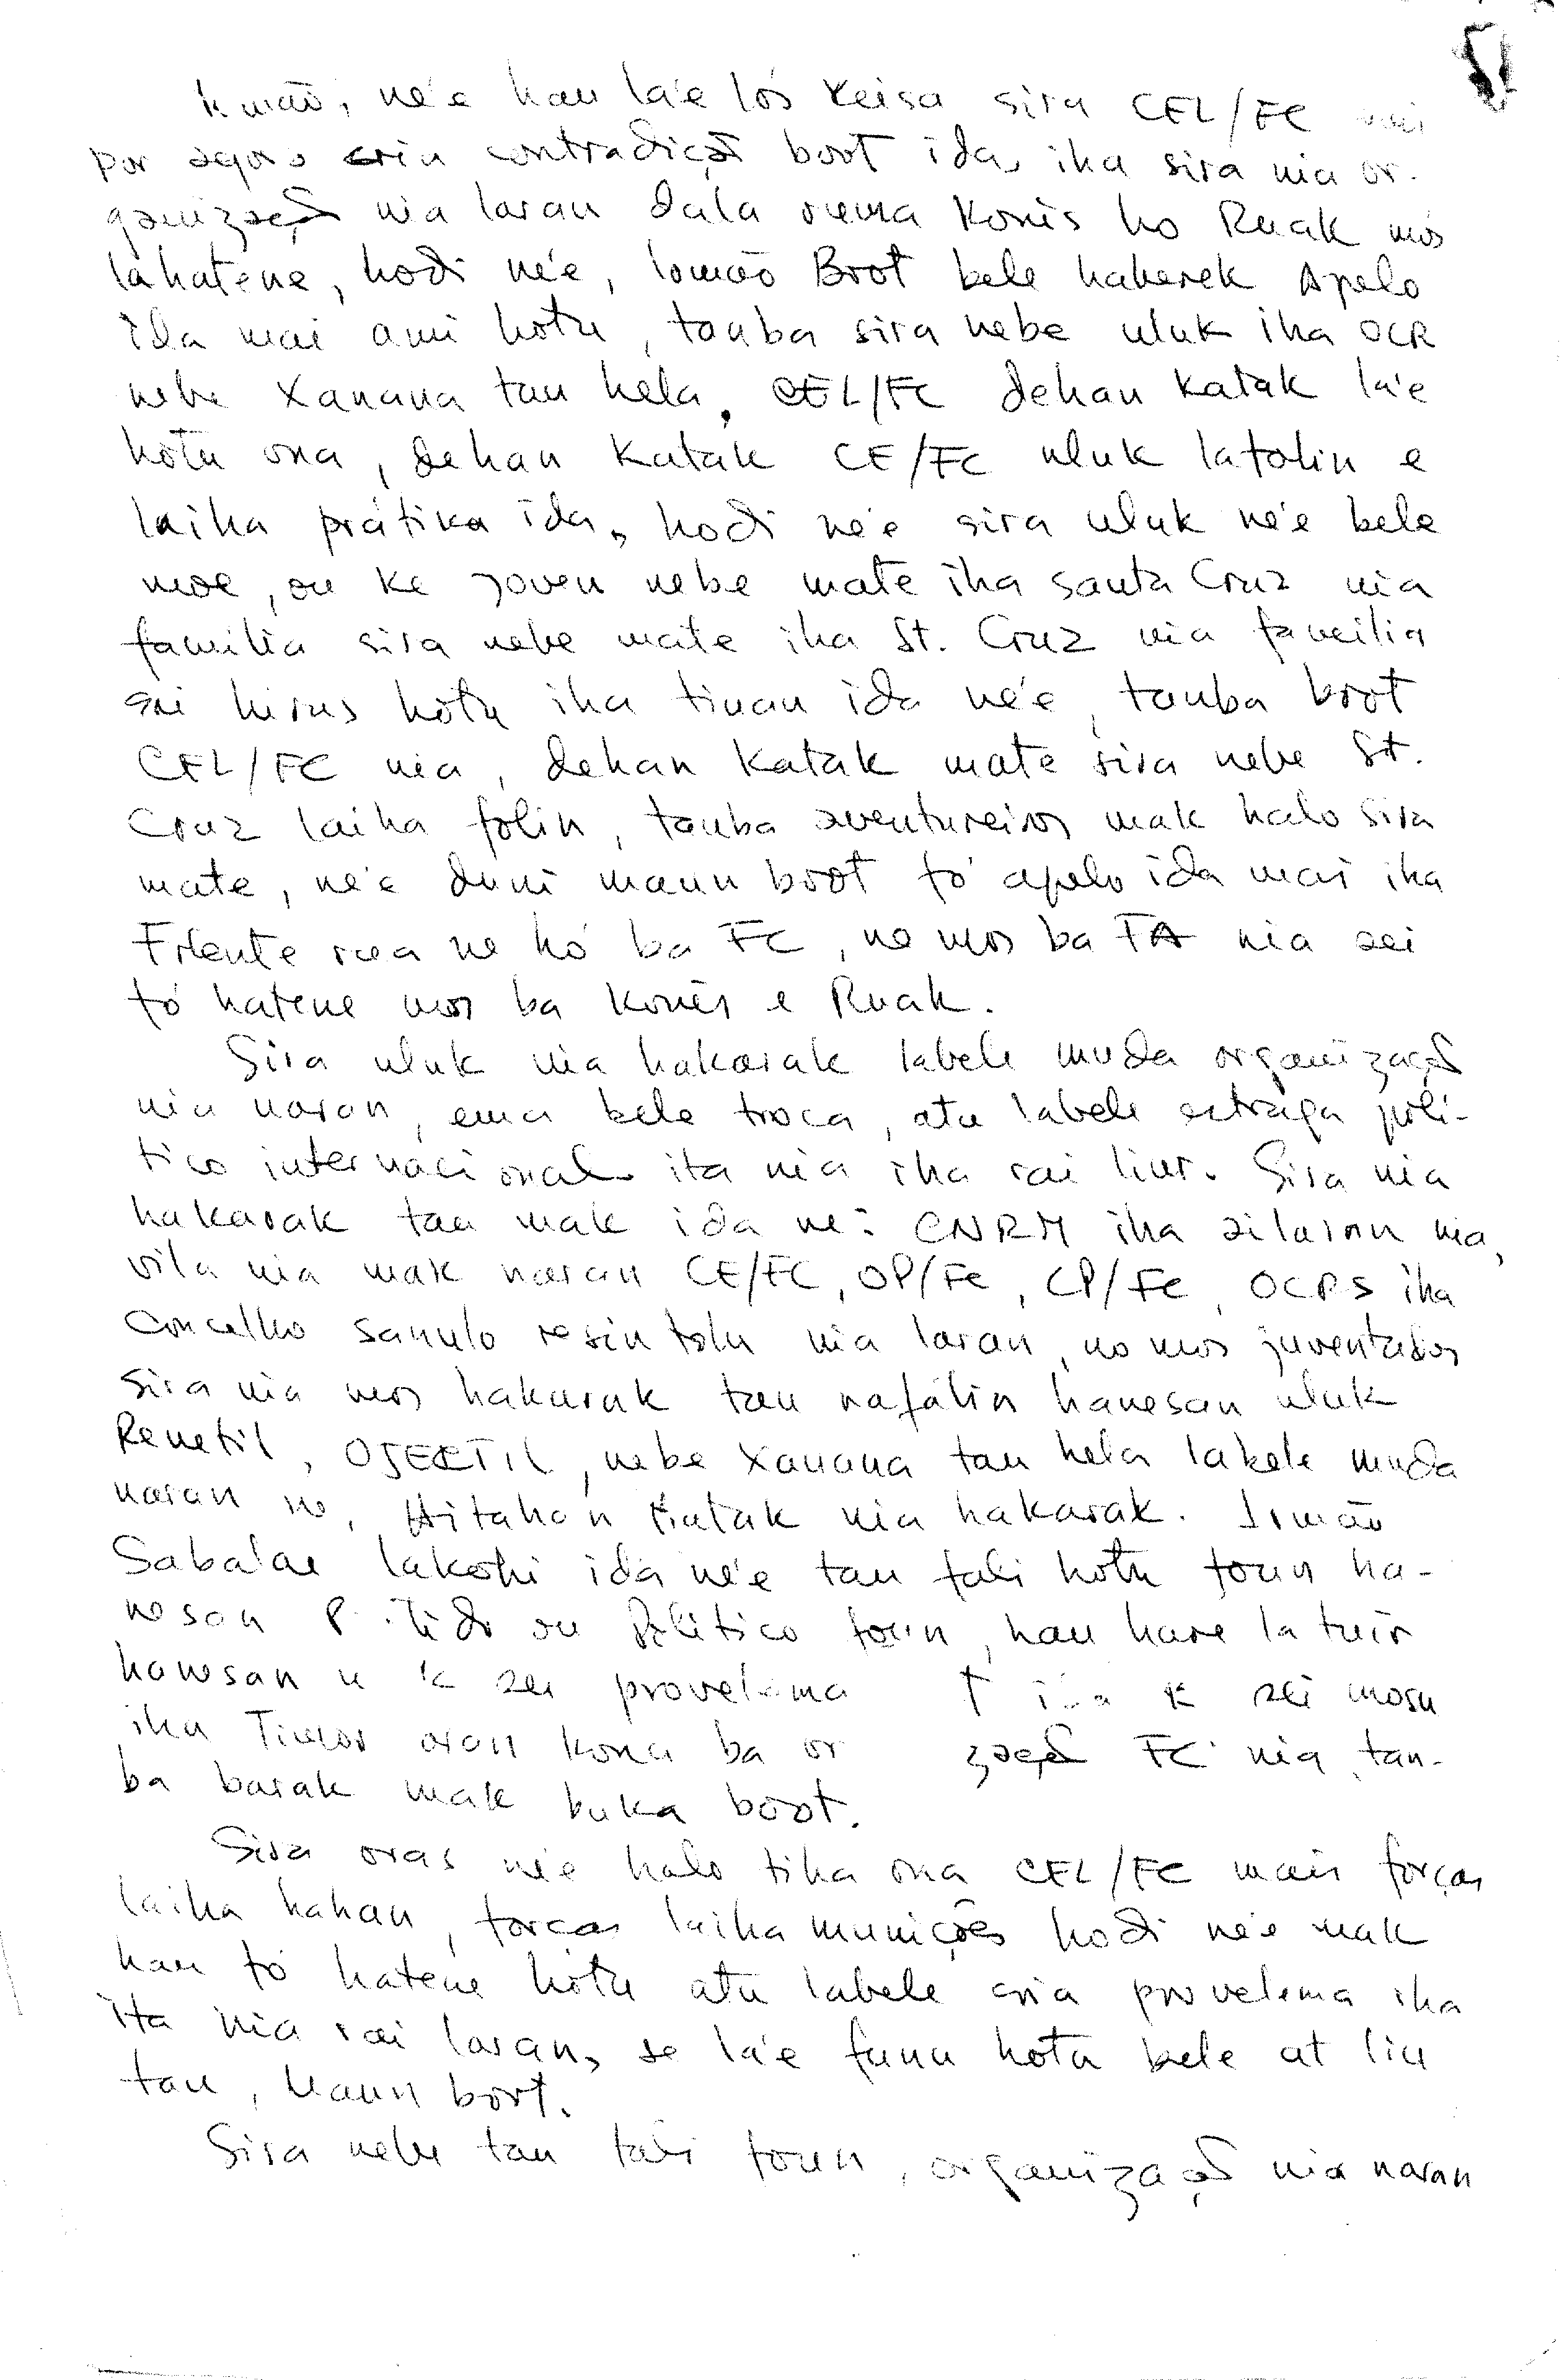 Irmão, ne'e hau la'e lós keisa sira CEL/FC mai
por agora cria contradição boot ida, iha sira nia or-
ganização nia laran dala ruma Konis ho Ruak mós
lahatene, hodi ne'e, Irmão Boot bele hakerek Apelo
ida mai ami hotu, tanba sira nebe uluk iha OCR
nebe Xanana tau hela. CEL/FC dehan katak la'e
hotu ona, dehan katak CE/FC uluk lafolin e
laiha prática ida, hodi ne'e sira uluk ne'e bele
moe, ou ke joven nebe mate iha Santa Cruz nia
familia sira nebe mate iha St. Cruz nia familia
sei hirus hotu iha tinan ida ne'e, tanba boot
CEL/FC nia, dehan katak mate sira nebe St.
Cruz laiha folin, tanba aventureiros mak halo sira
mate, ne'e duni maun boot fó apelo ida mai iha
Frente rua ne hó ba FC, no mos ba FA nia sei
fó hatene mos ba Konis e Ruak.
Sira uluk nia hakarak labele muda organização
nia naran, ema bele troca, atu labele estraga polí-
tico internacional ita nia iha rai liur. Sira nia
hakarak tau mak ida ne: CNRM iha ailaran nia,
vila nia mak naran CE/FC, OP/FC, CP/FC, OCRS iha
Concelho sanulo resin tolu nia laran, no mos juventudos
sira nia mos hakarak tau nafatin hanesan uluk
Renetil, OJECTIL, nebe Xanana tau hela labele muda
naran no, Hitahan Katak nia hakarak. Irmão
Sabalae lakohi ida ne'e tau fali hotu foun ha-
nesan P tido ou Político foun, hau hare la tuir
hanesan u k sei provelema sei mosu
iha Timor oran kona ba or zação FC nia, tan-
ba barak mak buka boot.
Sira oras ne'e halo tiha ona CEL/FC mais forças
laiha hahan, forças laiha munições hodi ne'e mak
hau fó hatene hotu atu labele cria provelema iha
ita nia rai laran, se la'e funu hotu bele at liu
tau, Maun boot.
Sira nebe tau fali foun, organização nia naran